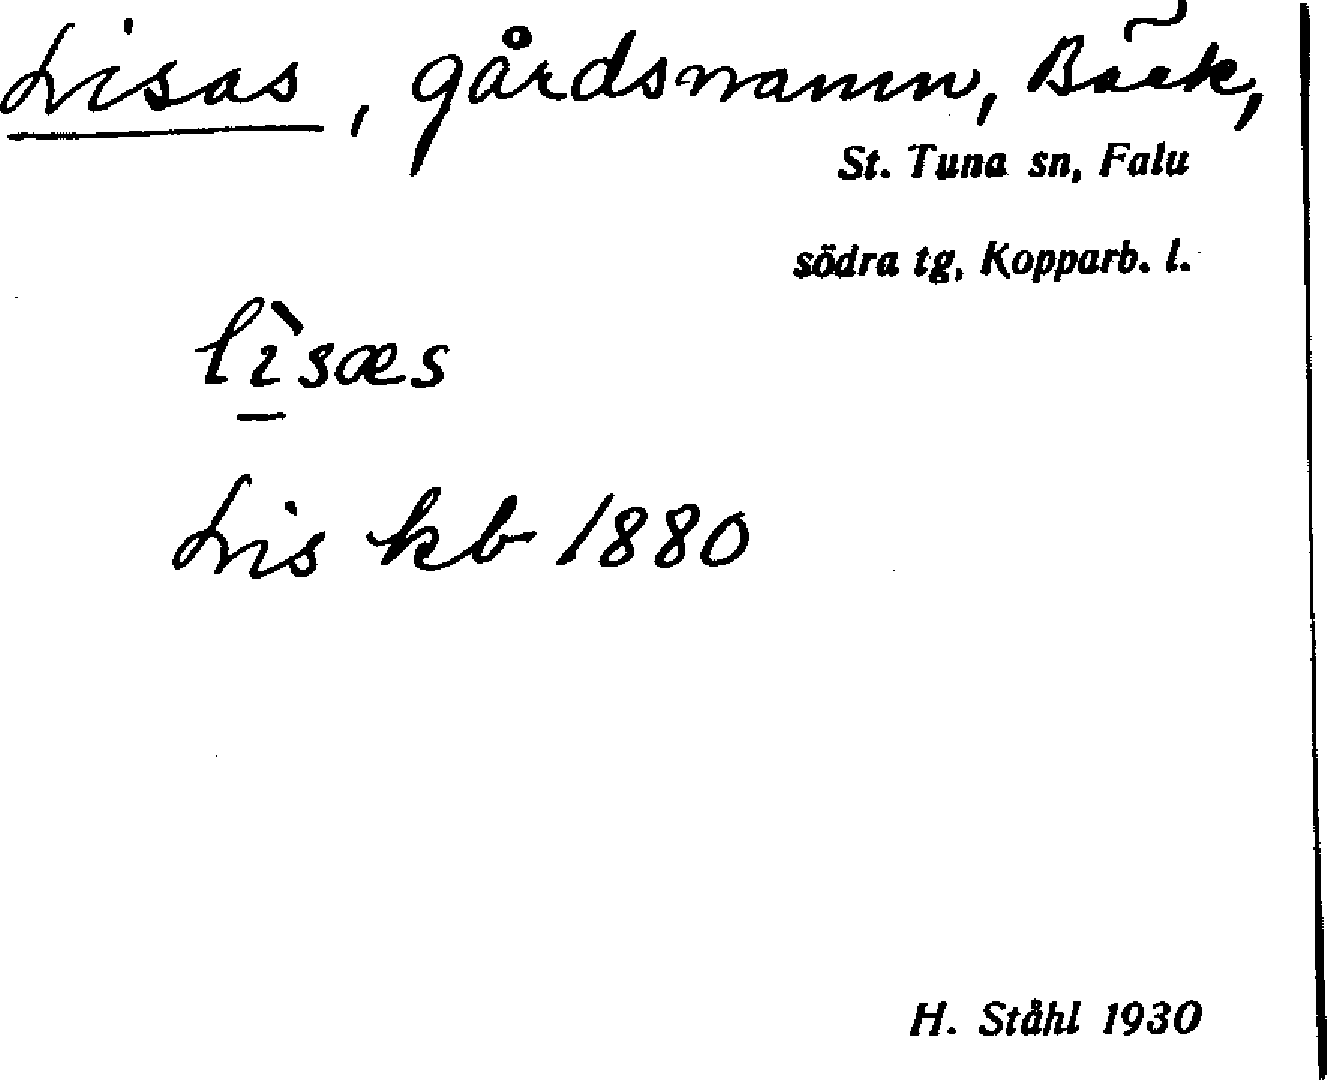 Lisas, gårdsnamn, Bäck,
St. Tuna sn, Falu
södra tg, Kopparb. l.
lìsæs
Lis kb 1880
H. Ståhl 1930